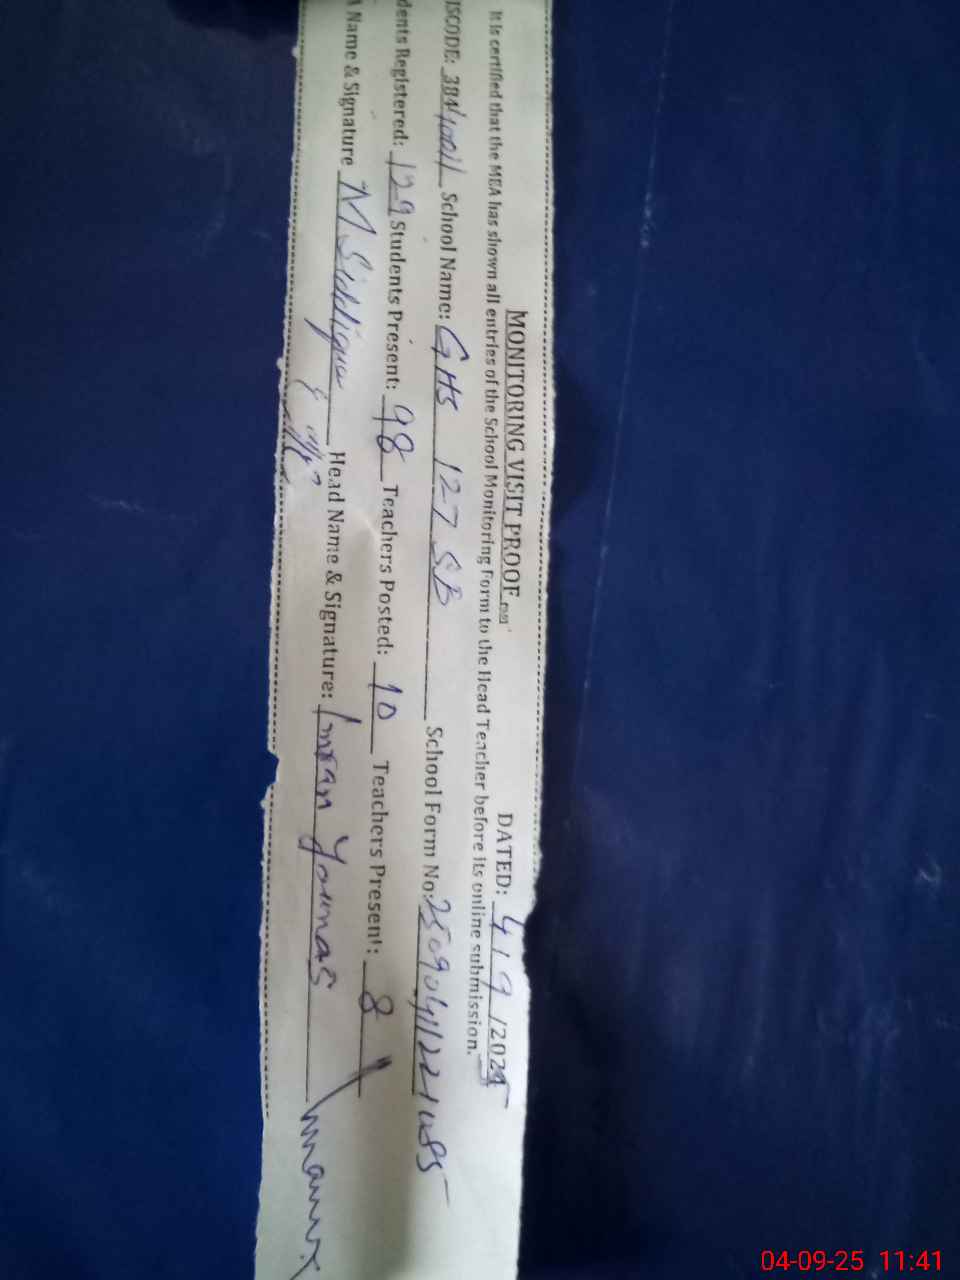 MONITORING VISIT PROOF DATED: 4/9/2025
It is certified that the MEA has shown all entries of the School Monitoring Form to the Head Teacher before its online submission.
ISCODE: School Name: GHS 127 SB School Form No:
dents Registered: 129 Students Present: 98 Teachers Posted: 10 Teachers Present: 8
Name & Signature M Siddique Head Name & Signature: Imran Younas
04-09-25 11:41